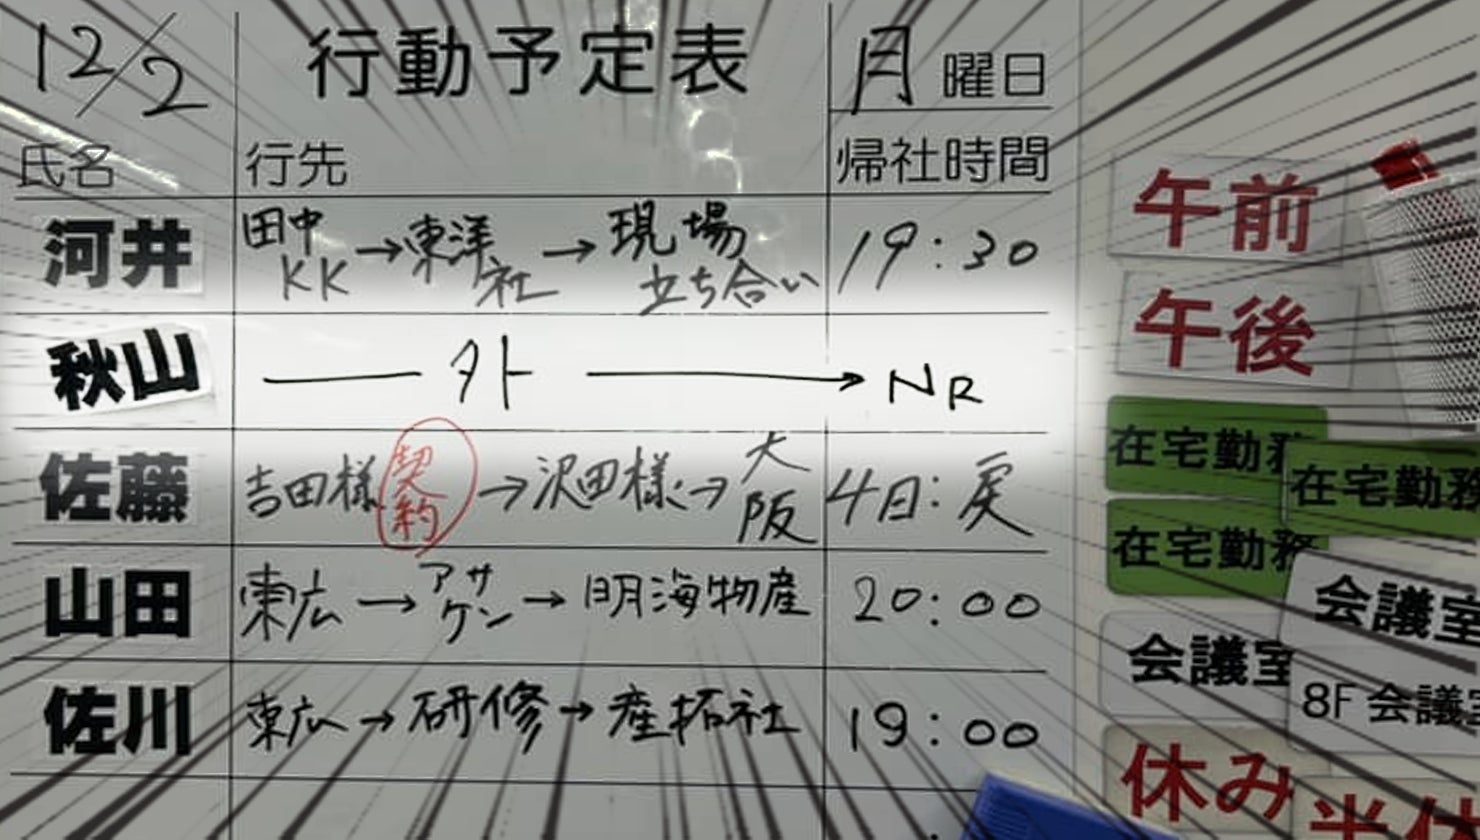 12/2 行動予定表 月 曜日
氏名 行先 帰社時間
河井 田中KK→東洋社→現場立ち合い 19:30
秋山 ― 外 ―→ NR
佐藤 吉田様 契約 →沢田様→大阪 4日:戻
山田 東広→アサケン→明海物産 20:00
佐川 東広→研修→産拓社 19:00
午前
午後
在宅勤務
在宅勤務
在宅勤務
会議室
会議室
8F 会議
休み